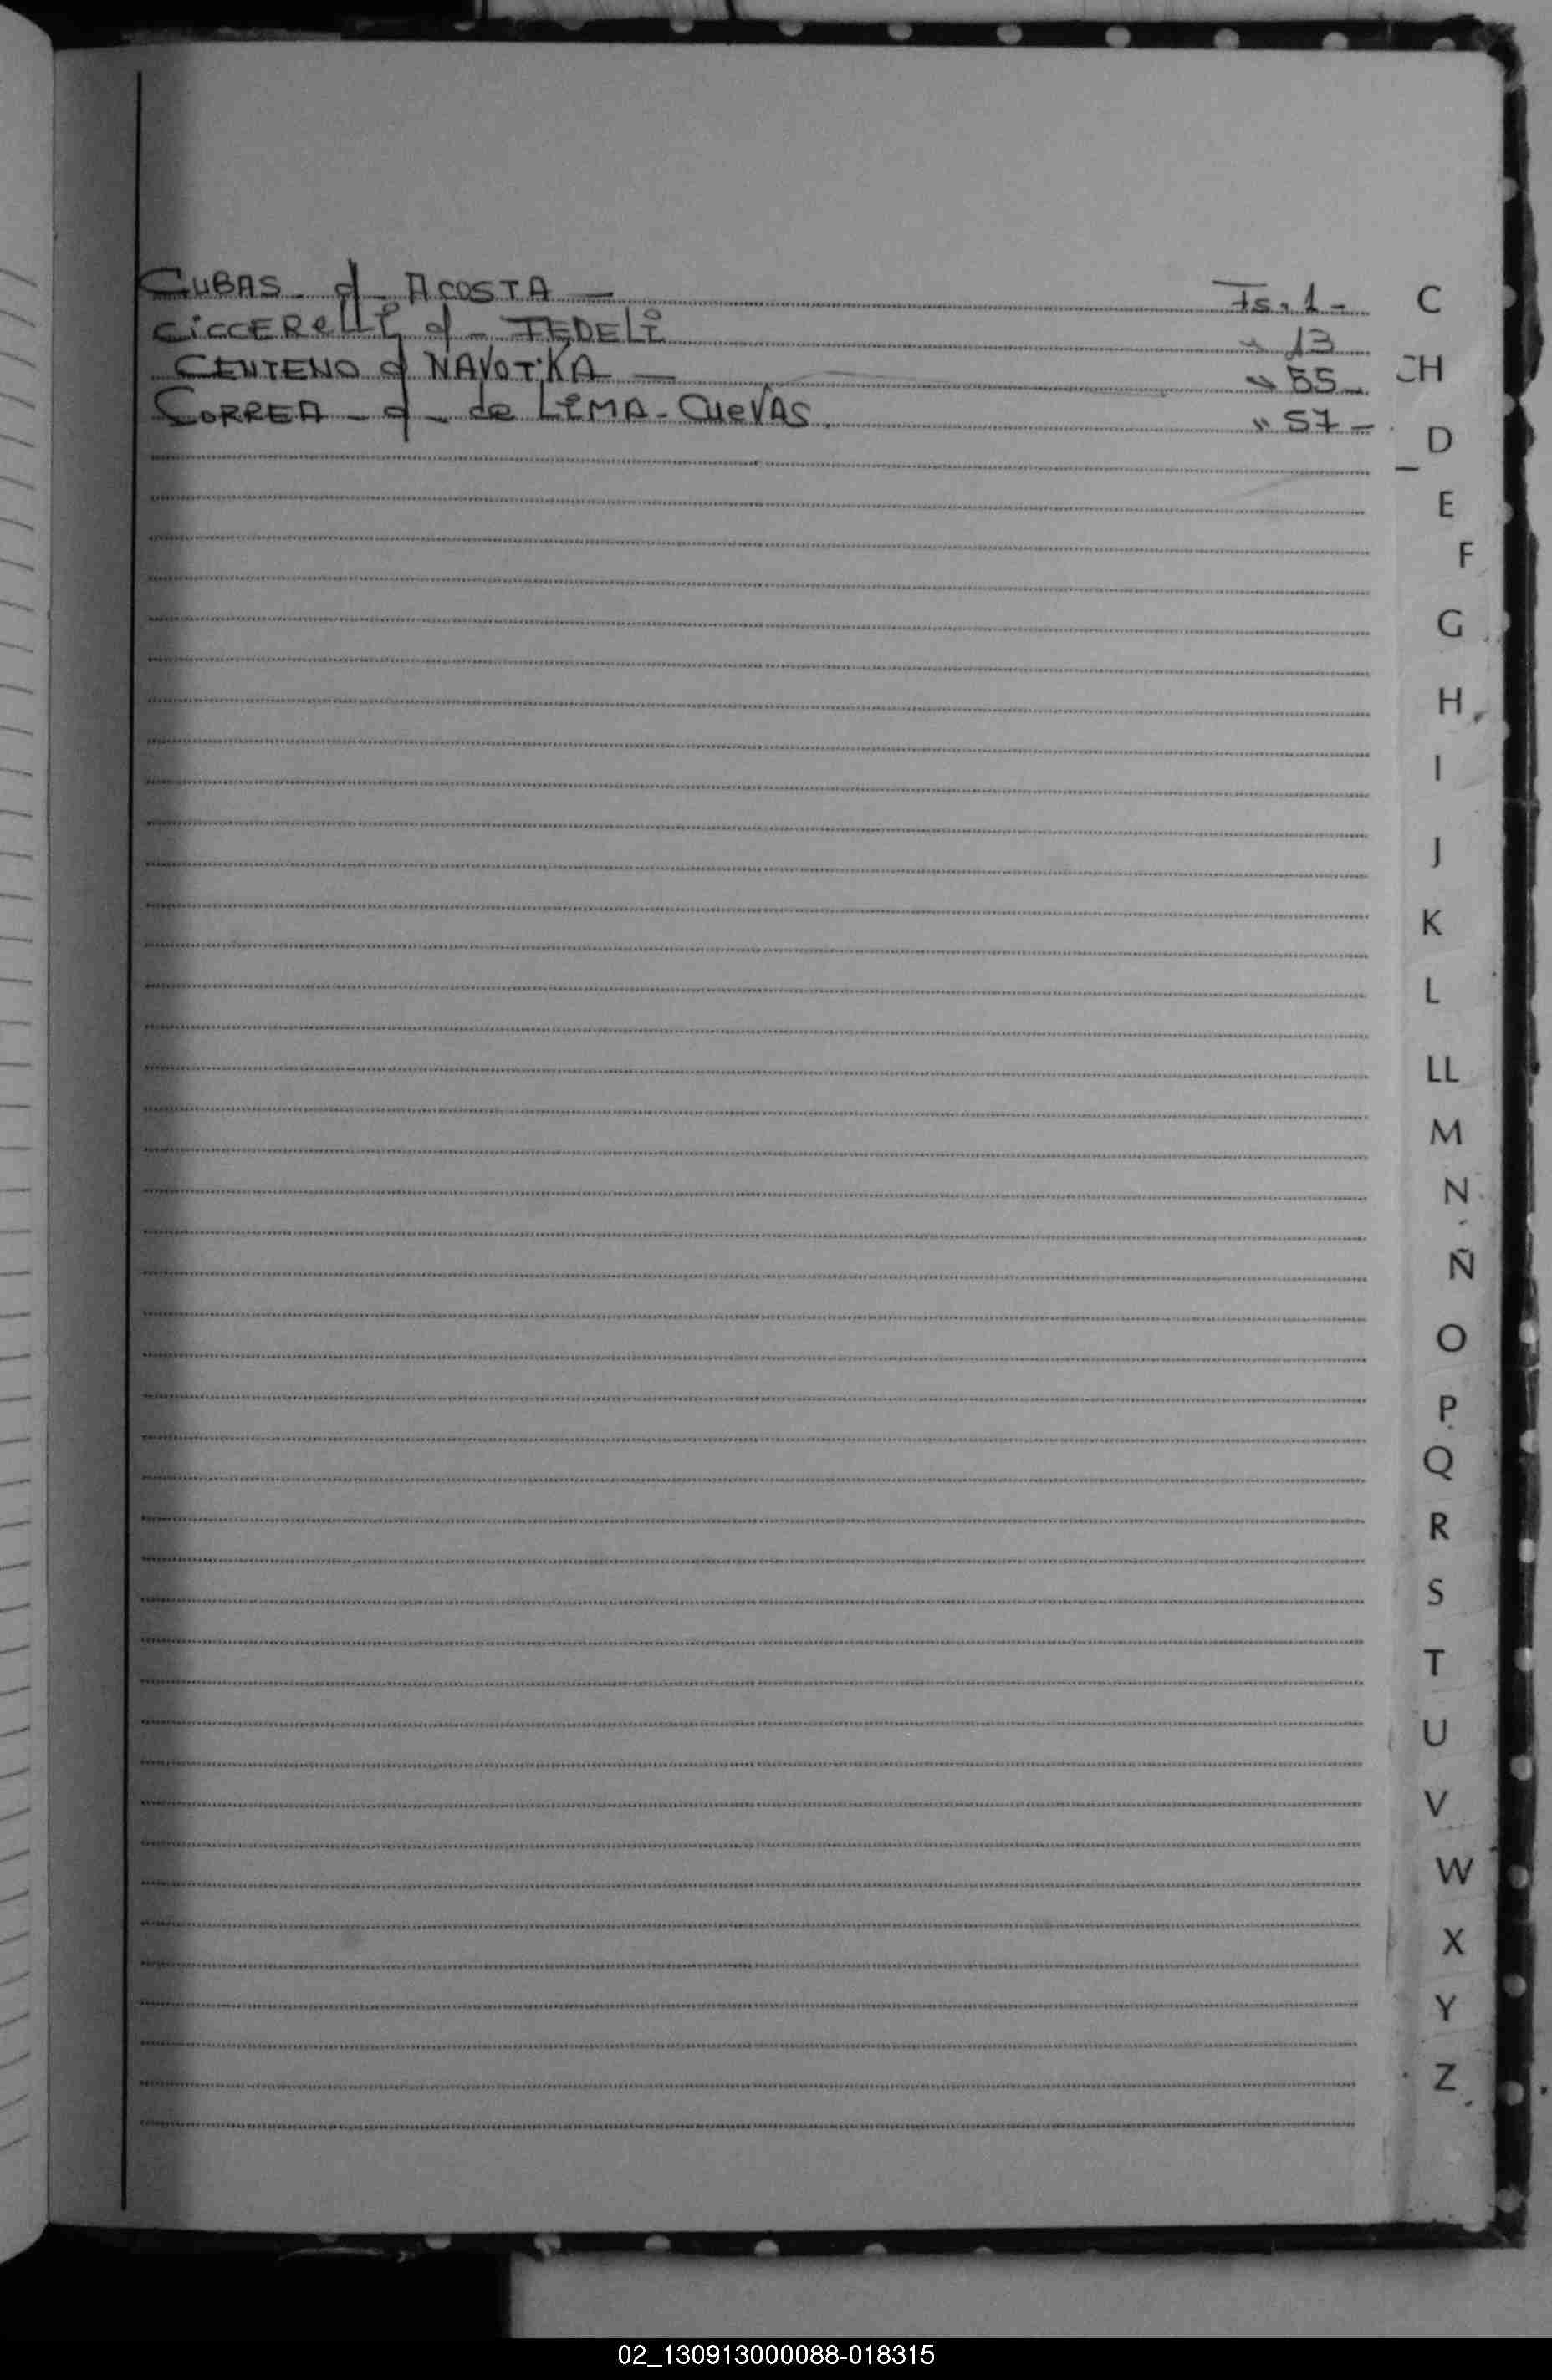 CUBAS - c/ - ACOSTA - Fs. 1 -
CiCCERELLI c/ - TEDELI " 13
CENTENO c/ NAVOTKA - " 55 -
CORREA - c/ - de LIMA - CUEVAS. " 57 -
C
CH
D
E
F
G
H
I
J
K
L
LL
M
N
Ñ
O
P
Q
R
S
T
U
V
W
X
Y
Z
02_130913000088-018315